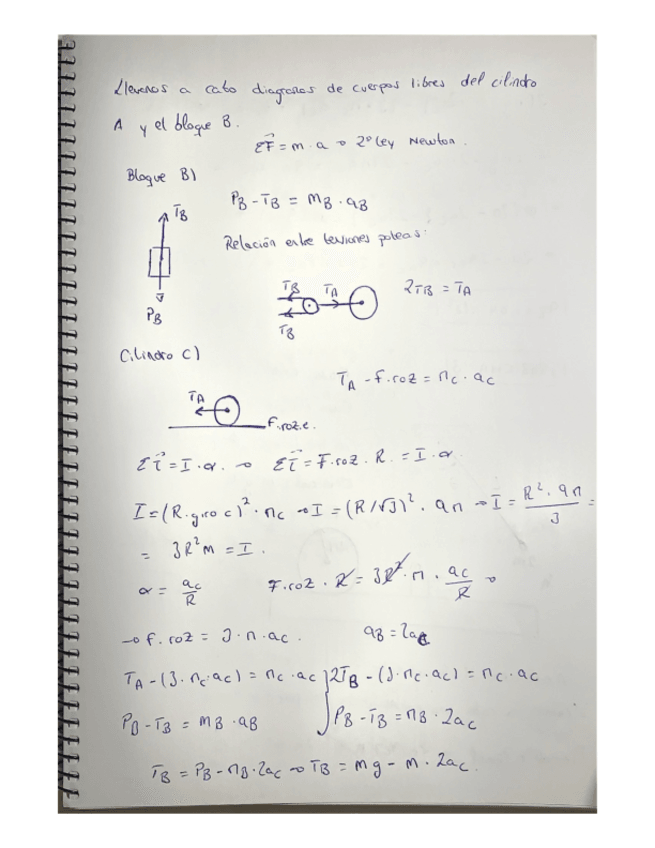 Llevenos a cabo diagramas de cuerpos libres del cilindro
A y el bloque B.
ΣF⃗ = m · a → 2º Ley Newton.
Bloque B)
T_B
P_B
P_B - T_B = m_B · a_B
Relación entre tensiones poleas:
T_B T_A
T_B
2T_B = T_A
Cilindro C)
T_A - F.roz = m_C · a_C
T_A
F.roz.e.
Στ⃗ = I · α → Στ⃗ = F.roz · R = I · α
I = (R.giro c)² · m_C → I = (R/√3)² · 9m → I = R² · 9m / 3 =
= 3R²m = I.
α = a_C / R
F.roz · R = 3R² · m · a_C / R →
→ F.roz = 3 · m · a_C.
a_B = 2a_C
T_A - (3 · m_C · a_C) = m_C · a_C
P_B - T_B = m_B · a_B
2T_B - (3 · m_C · a_C) = m_C · a_C
P_B - T_B = m_B · 2a_C
T_B = P_B - m_B · 2a_C → T_B = mg - m · 2a_C.